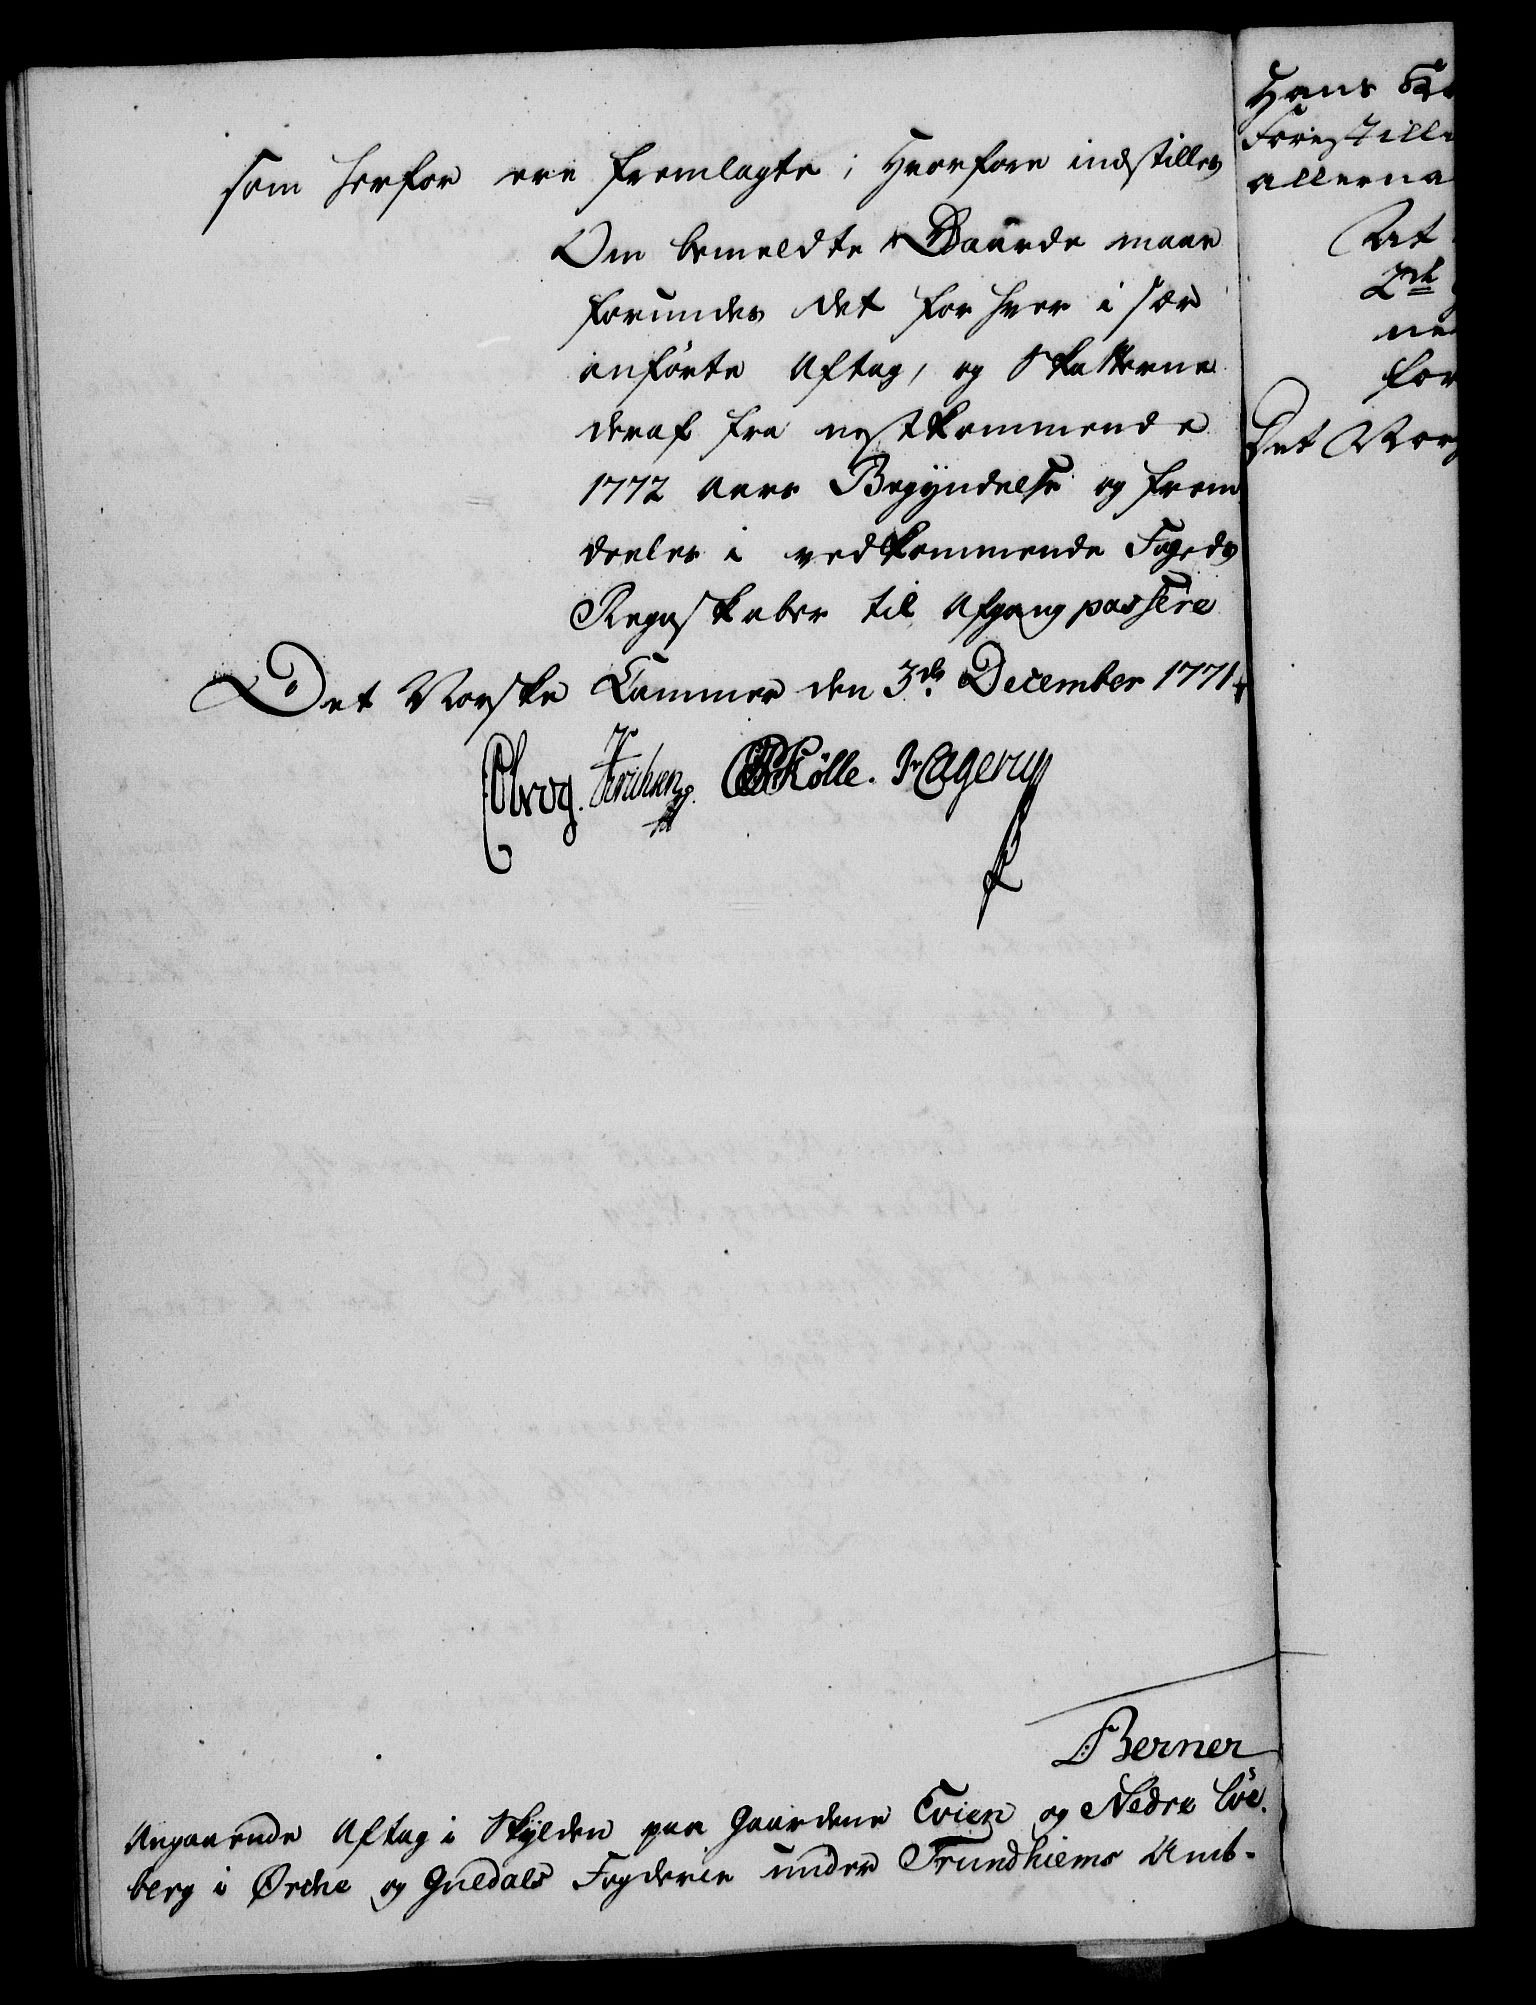 som herfor ere fremlagte; Hvorfore indstilles
Om bemeldte Gaarde maae
forundes det for hver i sær
anførte Aftag, og Skatterne
deraf fra nestkommende
1772 Aars Begyndelse og frem
deeles i vedkommende Fogeds
Regnskaber til Afgang passere
Det Norske Cammer den 3de December 1771.
Skølle. Hagerup
Berner
Angaaende Aftag i Skylden paa Gaardene Evien og Nedre Løe-
berg i Ørche og Guldals Fogderie under Trundhiems Amt.
Hans
Forestille
allerna
At
2de
ne
for
Det Nors